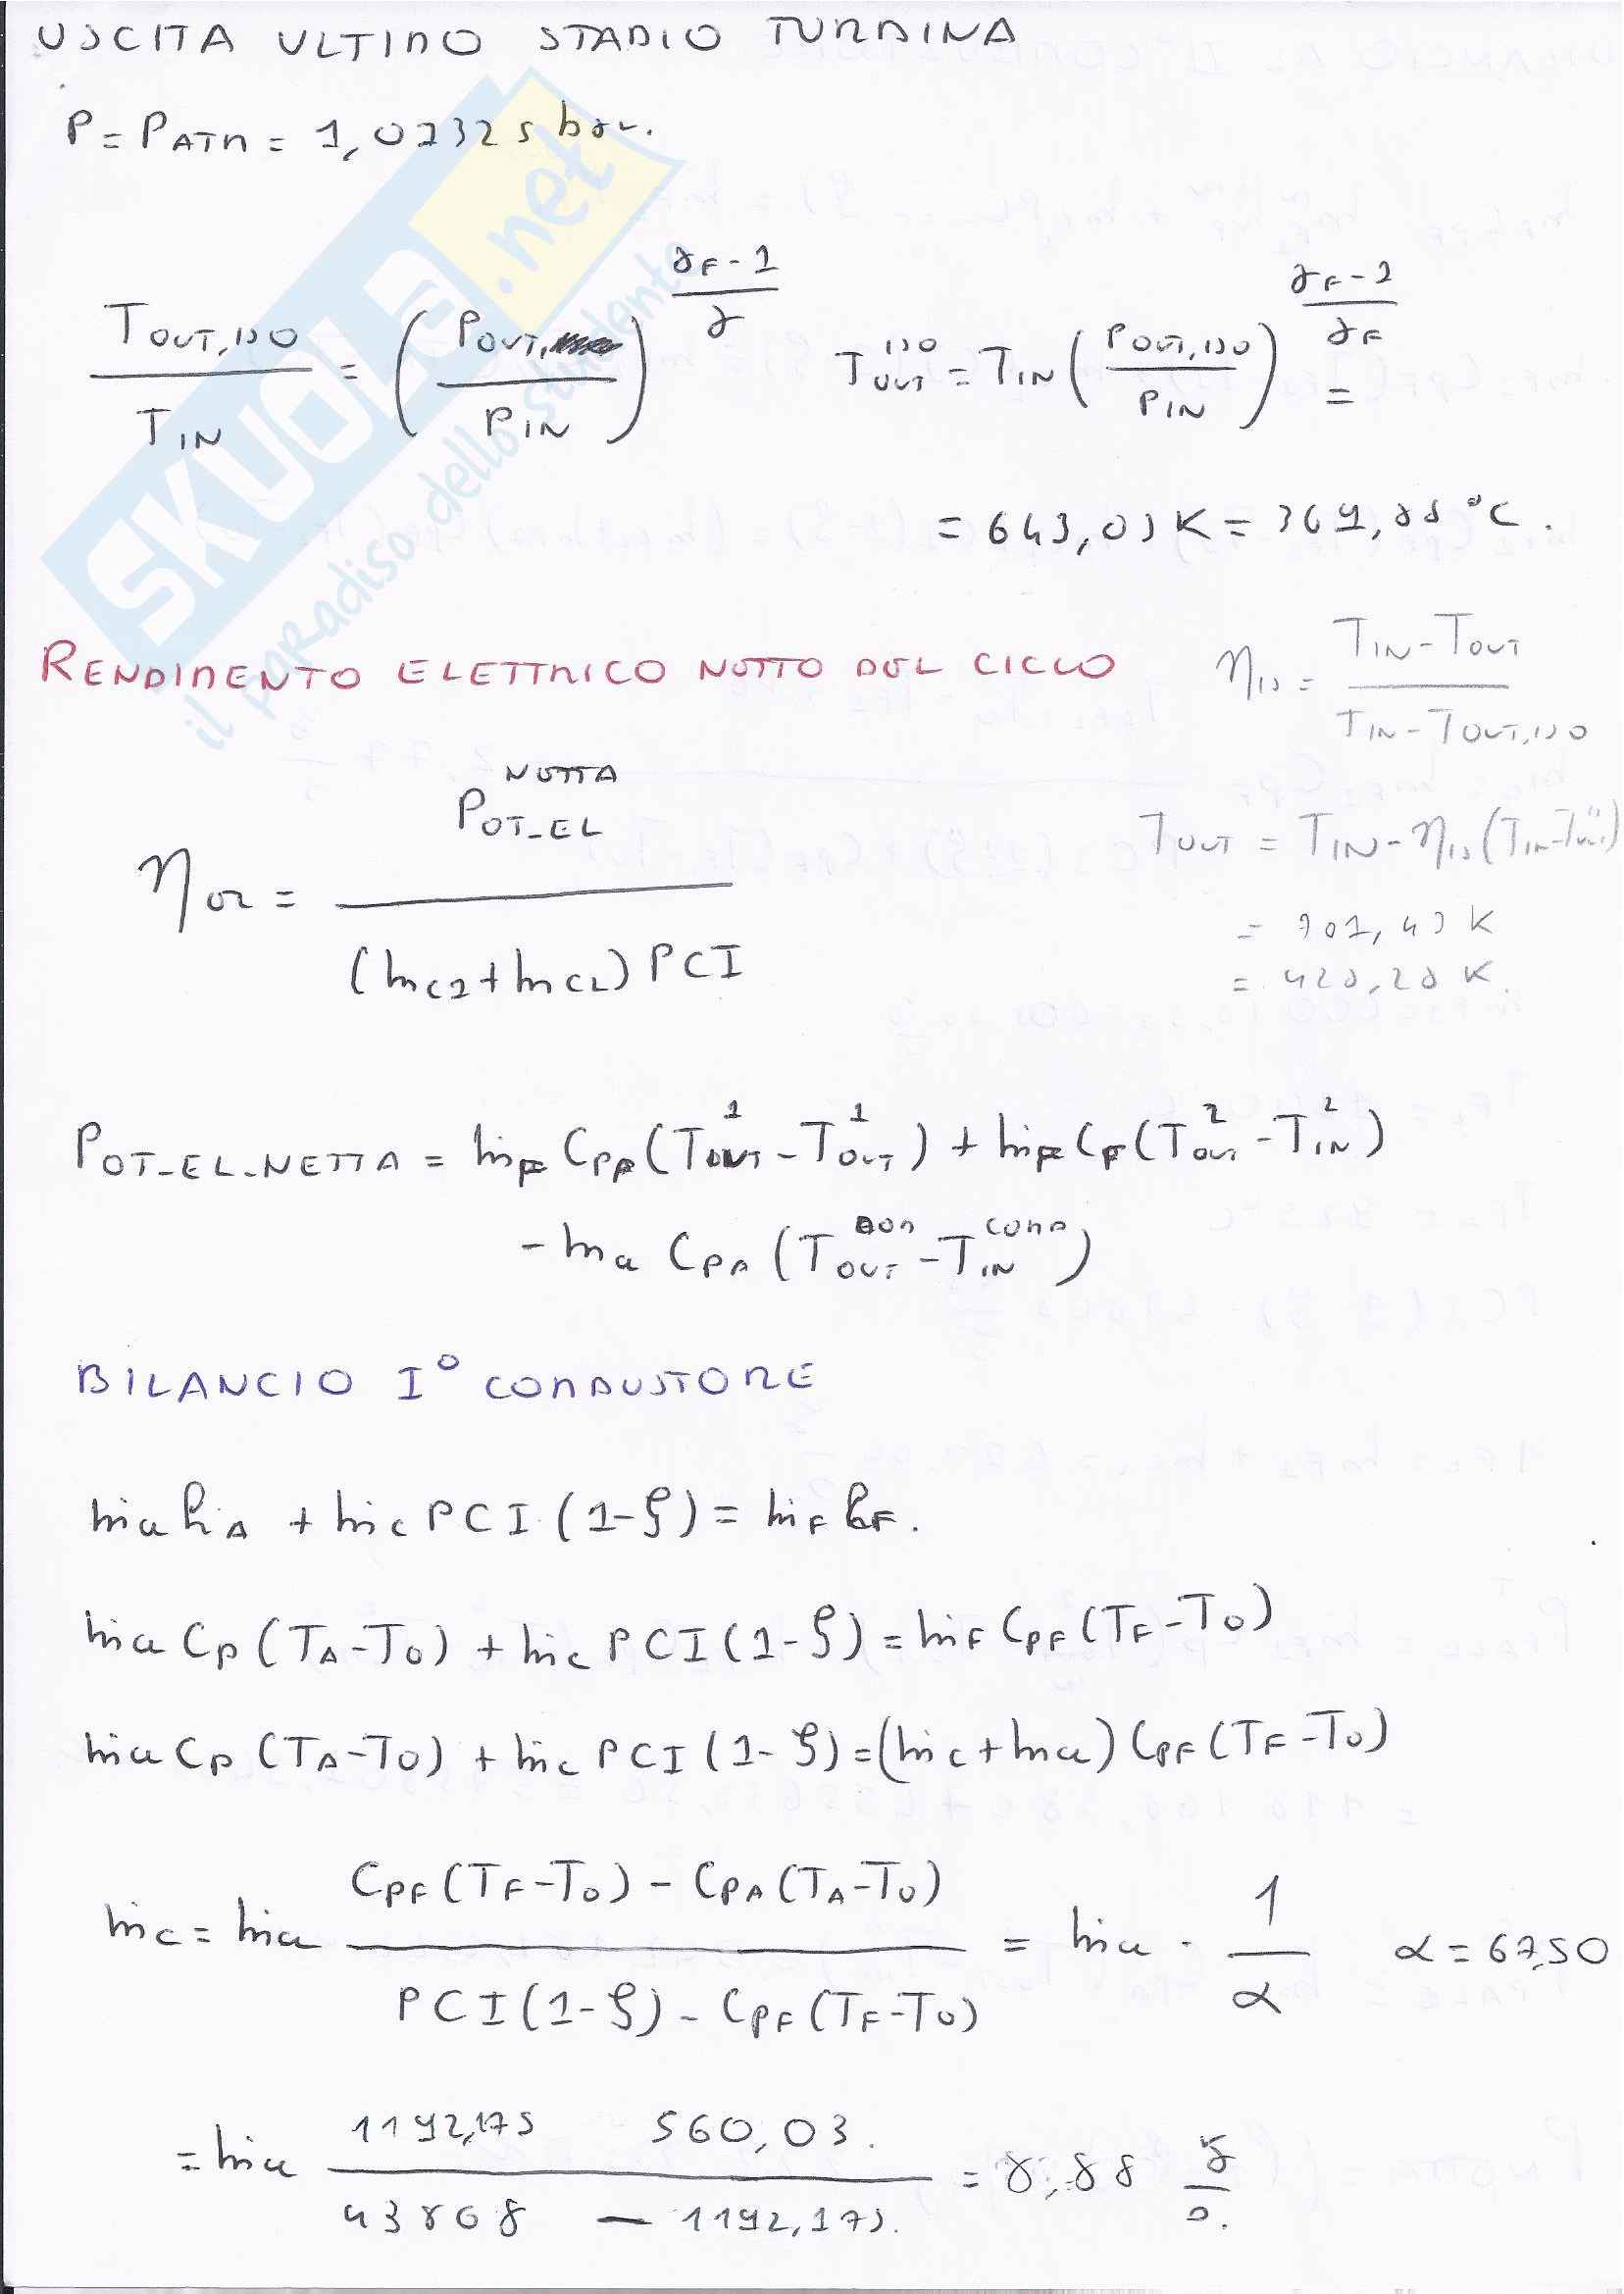 USCITA ULTIMO STADIO TURBINA
P = PATM = 1,01325 bar.
TOUT,ISO / TIN = (POUT, / PIN)^((γF-1)/γ)   TOUT^ISO = TIN (POUT,ISO / PIN)^((γF-1)/γF) =
= 643,03 K = 369,88 °C.
RENDIMENTO ELETTRICO NETTO DEL CICLO
ηIS = (TIN - TOUT) / (TIN - TOUT,ISO)
ηEL = POT_EL^NETTA / (ṁC1 + ṁC2) PCI
TOUT = TIN - ηIS (TIN - TOUT^IS)
= 701,43 K
= 428,28 K.
POT_EL_NETTA = ṁF CPF (TIN^1 - TOUT^1) + ṁF CF (TOUT^2 - TIN^2)
- ṁa CPA (TOUT^COM - TIN^COMP)
BILANCIO I° COMBUSTORE
ṁa hA + ṁC PCI (1-ξ) = ṁF hF.
ṁa CP (TA-T0) + ṁC PCI (1-ξ) = ṁF CPF (TF-T0)
ṁa CP (TA-T0) + ṁC PCI (1-ξ) = (ṁC + ṁa) CPF (TF-T0)
ṁC = ṁa (CPF (TF-T0) - CPA (TA-T0)) / (PCI (1-ξ) - CPF (TF-T0)) = ṁa · 1/α   α = 67,50
= ṁa (1192,175   560,03.) / (43808 — 1192,175.) = 8,88
SKUOLA.net
il paradiso dello studente